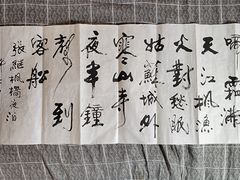 啼霜满
天江枫渔
火對愁眠
姑蘇城外
寒山寺
夜半鐘
聲到
客船
張继枫橋夜泊